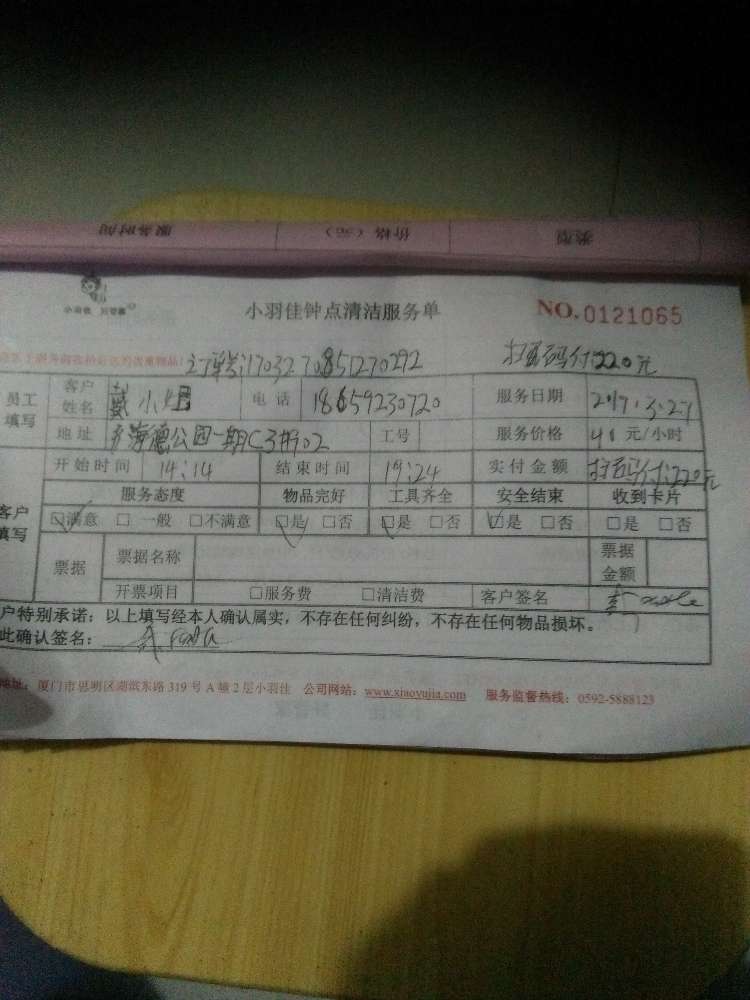 类型 价格（元） 服务时间
小羽佳
小羽佳钟点清洁服务单 NO.0121065
订单号:1703270851270292 扫码付:220元
员工填写 客户姓名 戴小姐 电话 18659230720 服务日期 2017.3.27
地址 海德公园一期C3栋902 工号 服务价格 41 元/小时
开始时间 14:14 结束时间 19:24 实付金额 扫码付:220元
客户填写 服务态度 物品完好 工具齐全 安全结束 收到卡片
☑满意 □ 一般 □不满意 ☑是 □否 ☑是 □否 ☑是 □否 □是 □否
票据 票据名称 票据金额
开票项目 □服务费 □清洁费 客户签名
户特别承诺：以上填写经本人确认属实，不存在任何纠纷，不存在任何物品损坏。
此确认签名：
地址：厦门市思明区湖滨东路 319 号 A 幢 2 层小羽佳 公司网站：www.xiaoyujia.com 服务监督热线：0592-5888123